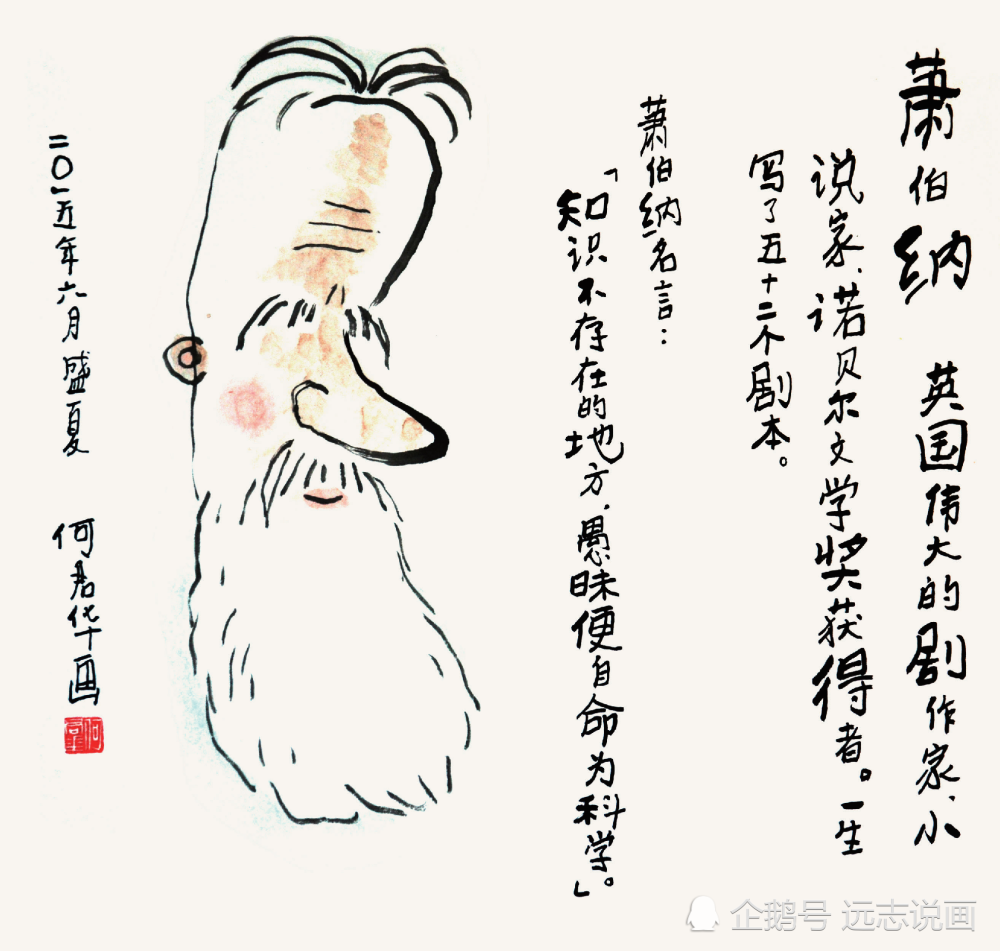 萧伯纳 英国伟大的剧作家、小
说家、诺贝尔文学奖获得者。一生
写了五十二个剧本。
萧伯纳名言：
「知识不存在的地方，愚昧便自命为科学。」
二〇一五年六月盛夏 何君华画
企鹅号 远志说画